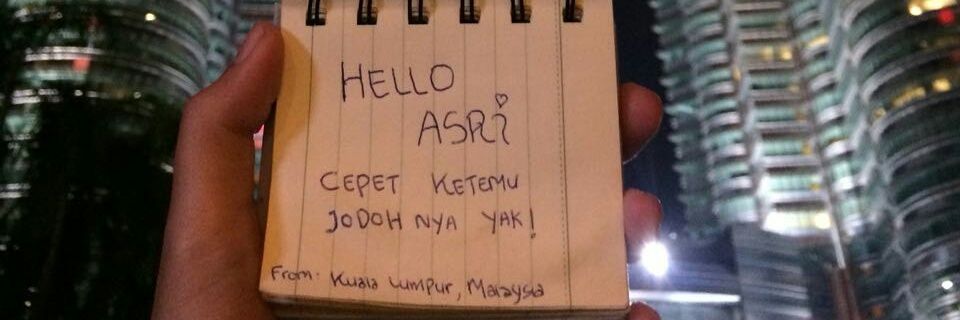 HELLO
ASRi
CEPET KETEMU
JODOH NYA YAK!
From: Kuala Lumpur, Malaysia